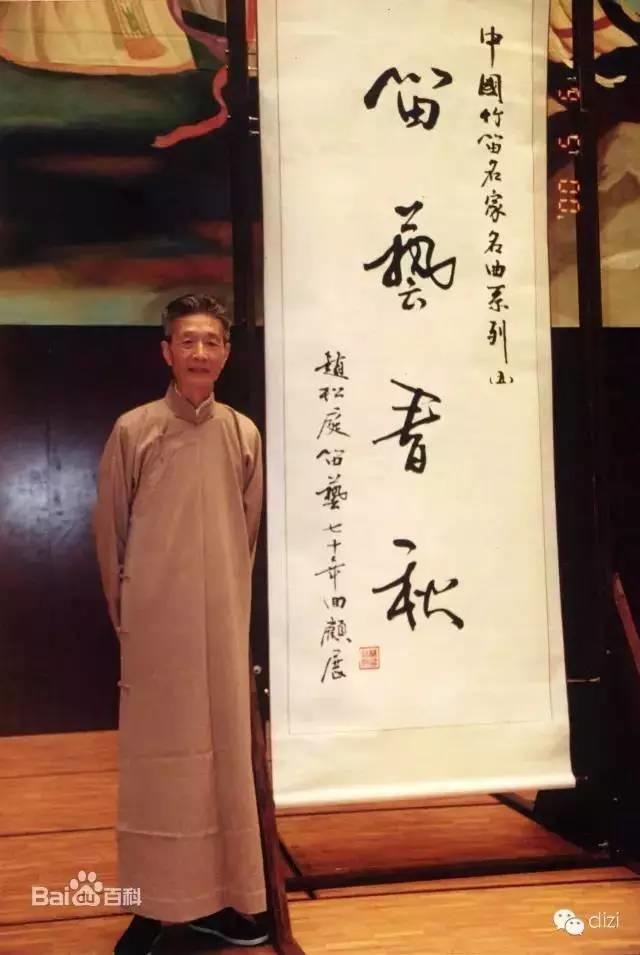 中國竹笛名家名曲系列(五)
笛藝春秋
趙松庭笛藝七十年回顧展
00.5.9
Bai du 百科
dizi